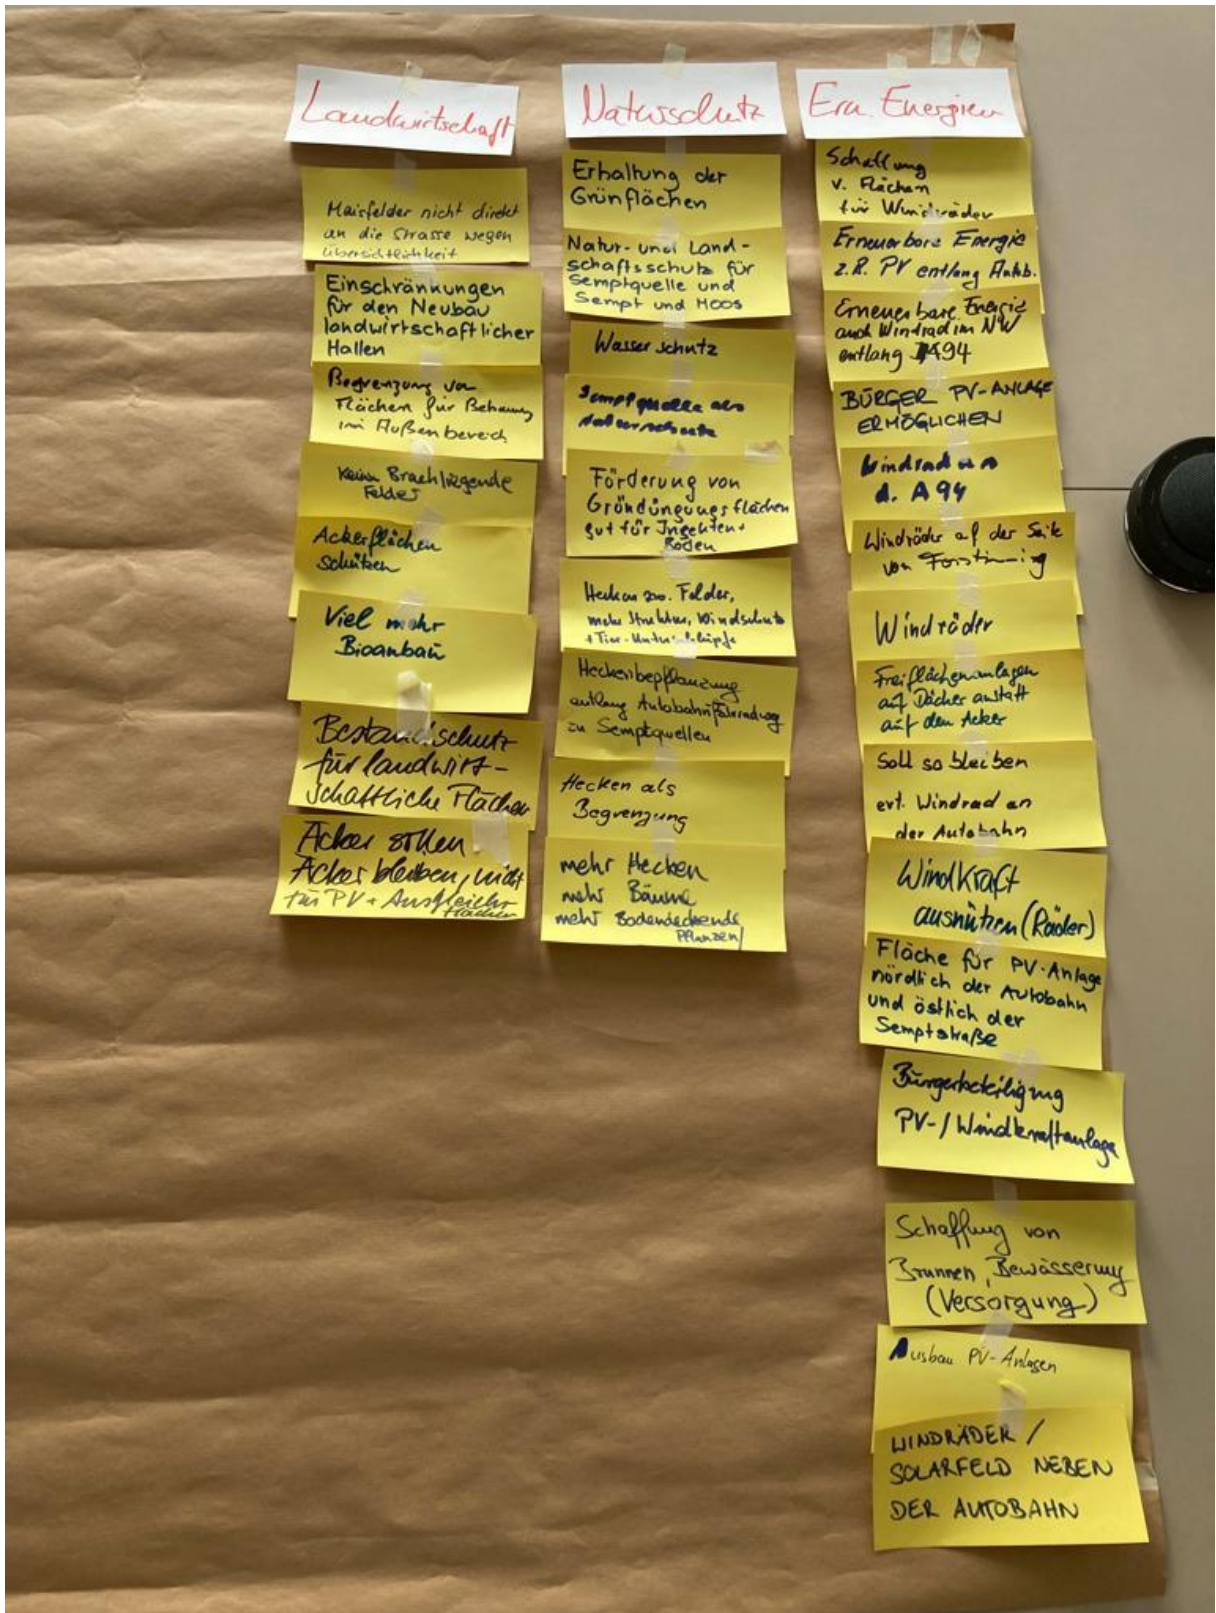 Landwirtschaft
Maisfelder nicht direkt
an die Strasse wegen
übersichtlichkeit
Einschränkungen
für den Neubau
landwirtschaftlicher
Hallen
Begrenzung von
Flächen für Bebauung
im Außenbereich
Keine Brachliegende
Felder
Ackerflächen
schützen
Viel mehr
Bioanbau
Bestandsschutz
für landwirt-
schaftliche Flächen
Äcker sollen
Äcker bleiben, nicht
für PV + Ausgleichs
flächen
Naturschutz
Erhaltung der
Grünflächen
Natur- und Land-
schaftsschutz für
Semptquelle und
Sempt und Moos
Wasserschutz
Semptquelle als
Förderung von
Gründüngungsflächen
gut für Insekten+
Böden
Hecken zw. Felder,
mehr Struktur, Windschutz
+ Tier-Unterschlüpfe
Heckenbepflanzung
entlang Autobahn/Fahrradweg
zu Semptquellen
Hecken als
Begrenzung
mehr Hecken
mehr Bäume
mehr Bodendeckende
Pflanzen/
Ern. Energien
Schaffung
v. Flächen
für Windräder
Erneuerbare Energie
z.B. PV entlang Autob.
Erneuerbare Energie
auch Windrad im NW
entlang A94
BÜRGER PV-ANLAGE
ERMÖGLICHEN
Windrad an
d. A94
Windräder auf der Seite
von Forstinning
Windräder
Freiflächenanlagen
auf Dächer anstatt
auf dem Acker
Soll so bleiben
evt. Windrad an
der Autobahn
Windkraft
ausnützen (Räder)
Fläche für PV-Anlage
nördlich der Autobahn
und östlich der
Semptstraße
Bürgerbeteiligung
PV-/Windkraftanlage
Schaffung von
Brunnen, Bewässerung
(Versorgung)
Ausbau PV-Anlagen
WINDRÄDER /
SOLARFELD NEBEN
DER AUTOBAHN